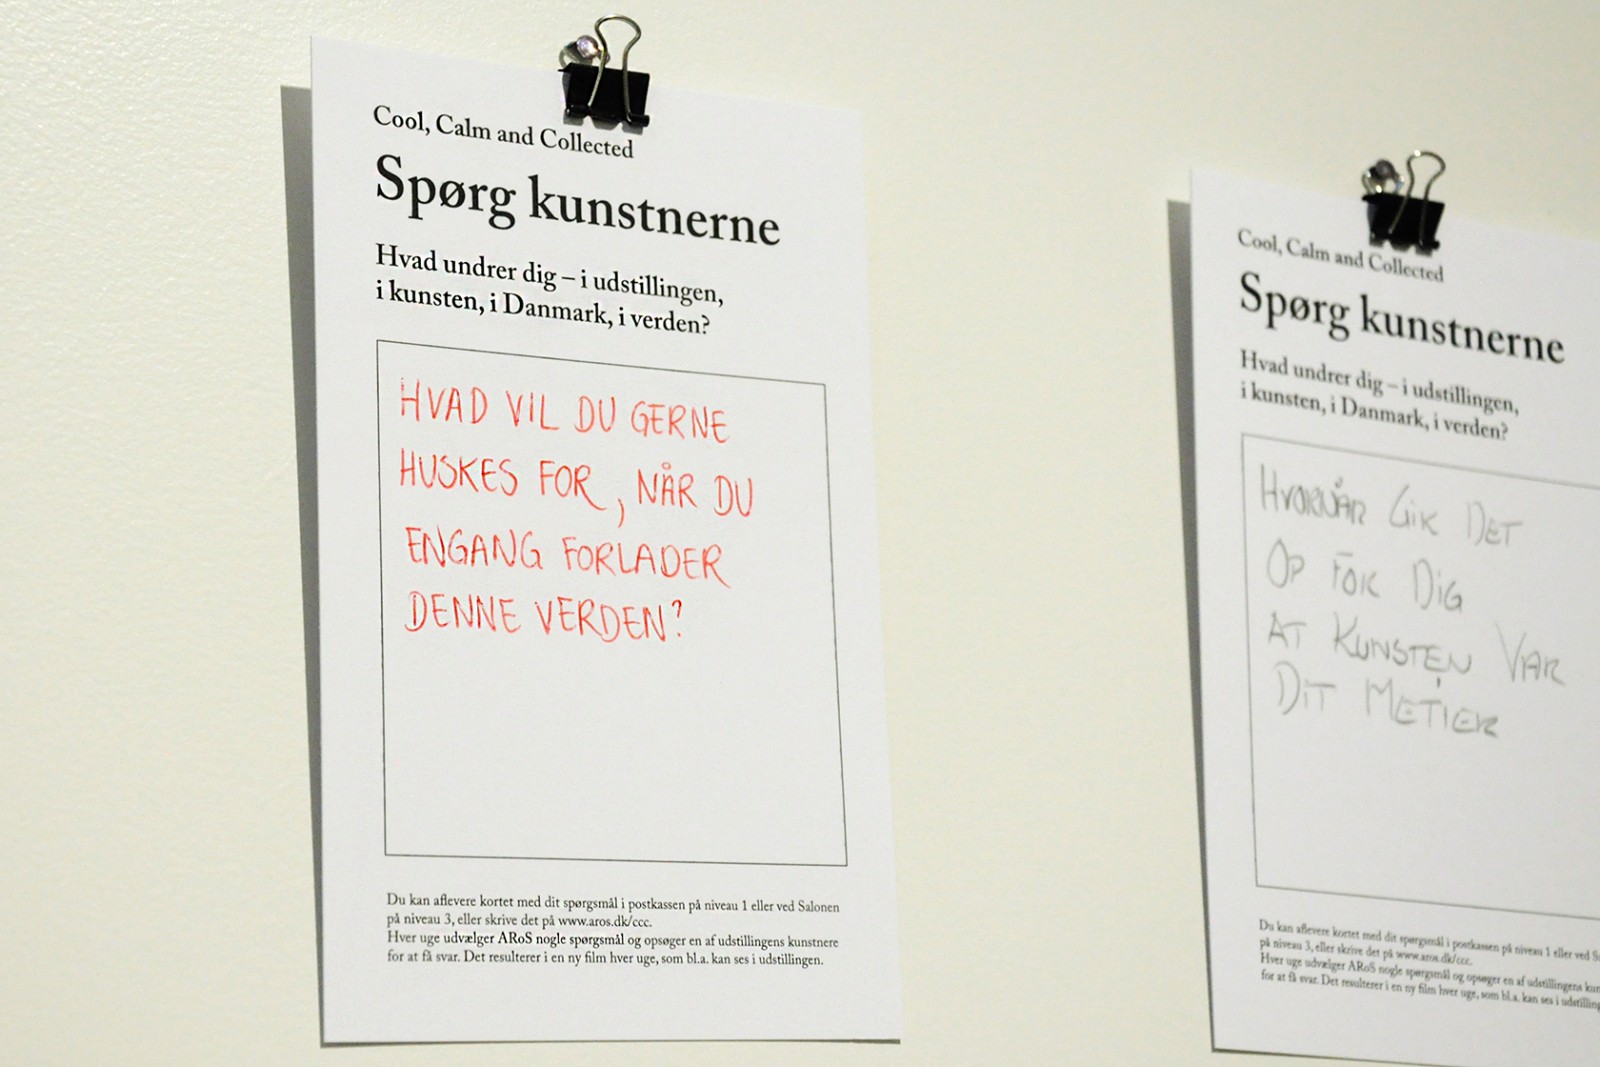 Cool, Calm and Collected
Spørg kunstnerne
Hvad undrer dig – i udstillingen,
i kunsten, i Danmark, i verden?
HVAD VIL DU GERNE
HUSKES FOR, NÅR DU
ENGANG FORLADER
DENNE VERDEN?
Du kan aflevere kortet med dit spørgsmål i postkassen på niveau 1 eller ved Salonen
på niveau 3, eller skrive det på www.aros.dk/ccc.
Hver uge udvælger ARoS nogle spørgsmål og opsøger en af udstillingens kunstnere
for at få svar. Det resulterer i en ny film hver uge, som bl.a. kan ses i udstillingen.
Cool, Calm and Collected
Spørg kunstnerne
Hvad undrer dig – i udstillingen,
i kunsten, i Danmark, i verden?
HVORNÅR GIK DET
OP FOR DIG
AT KUNSTEN VAR
DIT METIER
Du kan aflevere kortet med dit spørgsmål i postkassen på niveau 1 eller ved
på niveau 3, eller skrive det på www.aros.dk/ccc.
Hver uge udvælger ARoS nogle spørgsmål og opsøger en af udstillingens
for at få svar. Det resulterer i en ny film hver uge, som bl.a. kan ses i